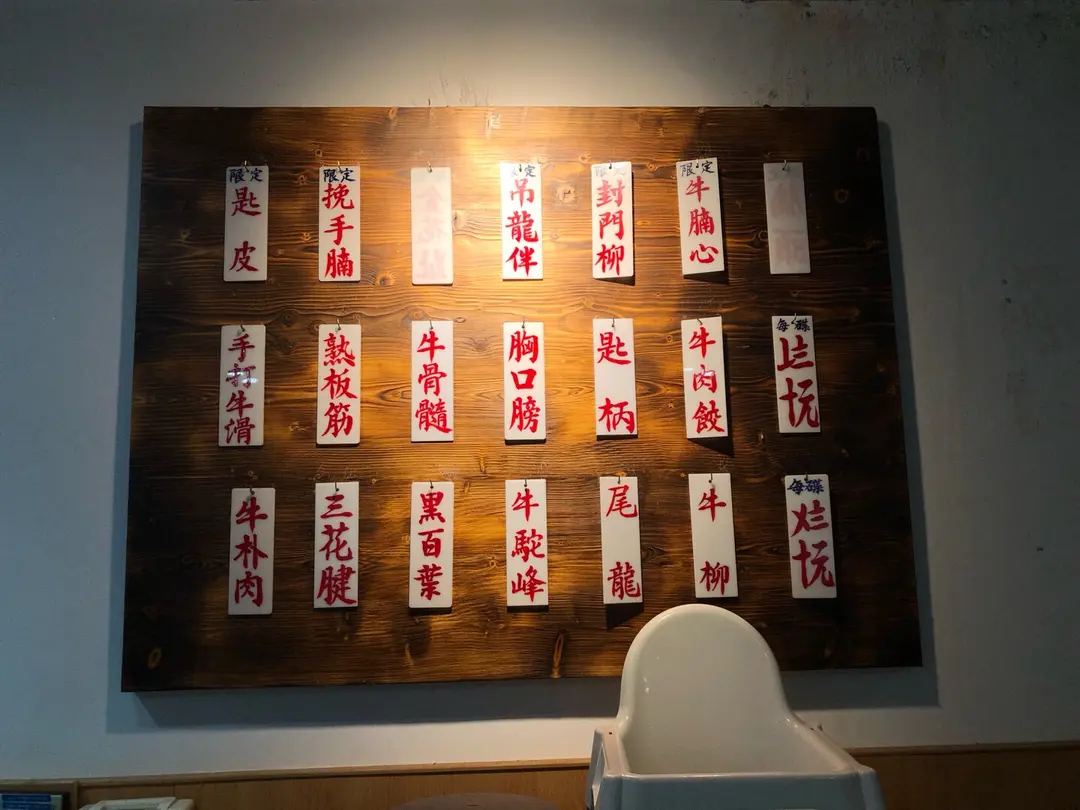 限定
匙皮
限定
挽手腩
定
吊龍伴
限定
封門柳
限定
牛腩心
手打牛滑
熟板筋
牛骨髓
胸口膀
匙柄
牛肉餃
每碟
牛朴肉
三花腱
黑百葉
牛駝峰
尾龍
牛柳
每碟